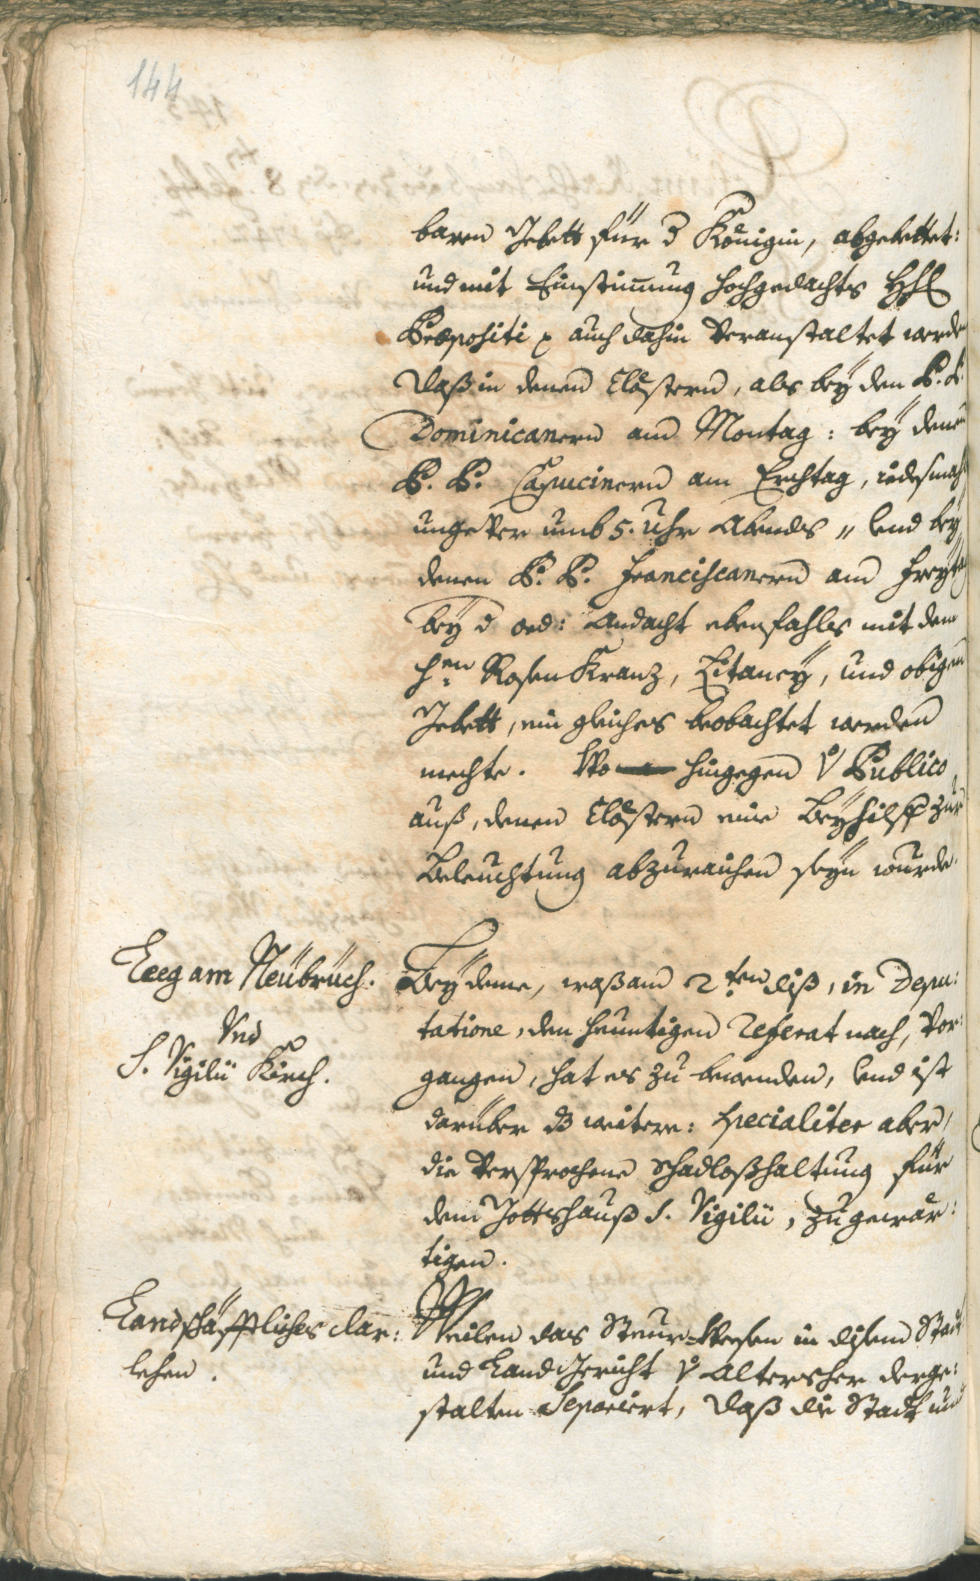 144
baren Gebett für d Königin, abgebettet:
und mit Einstimung hochgedachts H
Præpositi auch dahin veranstaltet werde
daß in denen Clöstern, als bey den P. P.
Dominicanern am Montag: bey denen
P. P. Capucinern am Erchtag, iedesmahl
ungever umb 5. Uhr Abends, und bey
denen P. P. Franciscanern am Freyt
bey d ord: Andacht ebenfahls mit dem
h:en RosenKranz, Litaney, und obigen
Gebett, ein gleiches beobachtet werden
mechte. Wo hingegen v Publico
auß, denen Clöstern eine Beyhilff zur
Beleuchtung abzuraichen seyn wurde.
Leeg am Neubruch.
Und
S. Vigilii Kirch.
Bey deme, waß am 2:ten diß, in Depu:
tatione, den heuntigen Referat nach, vor:
gangen, hat es zu bewenden, und ist
darüber dz weitere: specialiter aber,
die versprochene schadloßhaltung für
dem Gottshauß S. Vigilii, zugewär:
tigen.
Landschäfftliches dar:
lehen.
Weilen das Steur-Wesen in disem Stadt
und Land Gericht v Altersher derge:
stalten Separiert, daß die Stadt und